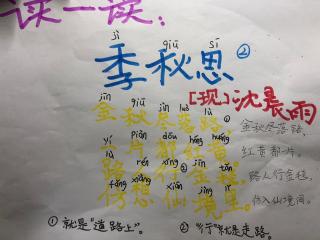 读一读：
jì qiū sī
季秋思②
[现]沈晨雨
jīn qiū jìn luò
金秋尽落路，①
yí piàn dōu hóng huáng
一片都红黄。
lù rén xíng jīn tǎn
路人行②金坛，
fǎng xiǎng xiān jìng lǐ
仿想仙境里。
金秋尽落路，
红黄都一片。
路人行金坛，
仿入仙境间。
①就是“道路上”。
②“行”就是走路。